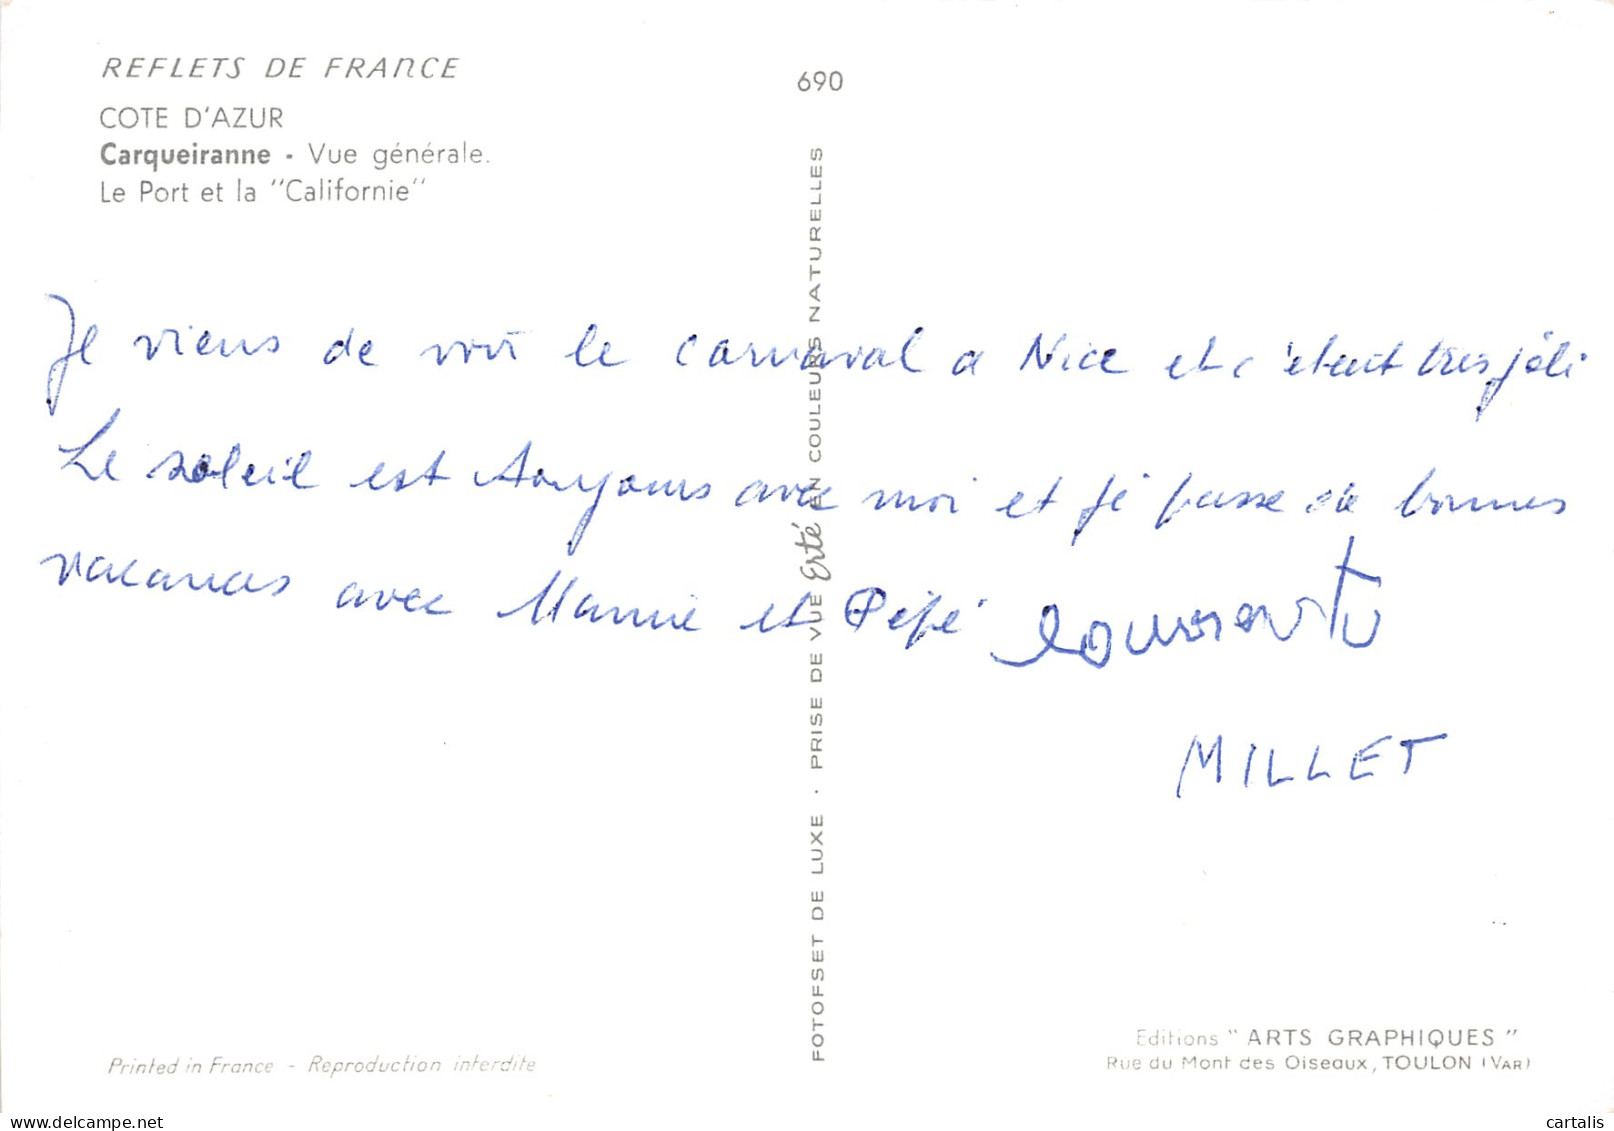 REFLETS DE FRANCE
COTE D'AZUR
Carqueiranne - Vue générale.
Le Port et la "Californie"
690
Je viens de voir le carnaval a Nice et c'était très joli
Le soleil est toujours avec moi et je passe de bonnes
vacances avec Mamie et Pépé
MILLET
FOTOFSET DE LUXE . PRISE DE VUE Erté EN COULEURS NATURELLES
Printed in France - Reproduction interdite
Editions "ARTS GRAPHIQUES"
Rue du Mont des Oiseaux, TOULON (VAR)
cartalis